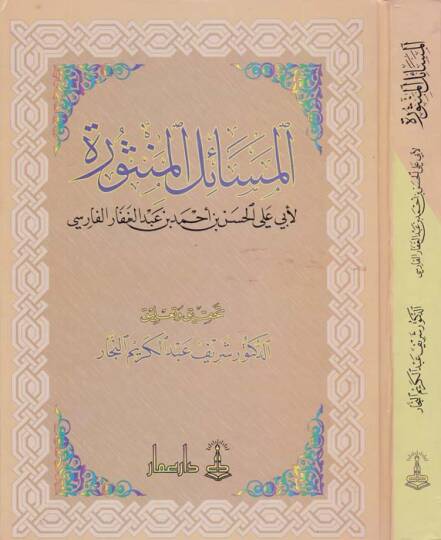 المسائل المنثورة
لأبي علي الحسن بن أحمد بن عبد الغفار الفارسي
تحقيق وتعليق
الدكتور شريف عبد الكريم النجار
دار عمار
المسائل المنثورة
لأبي علي الحسن بن أحمد بن عبد الغفار الفارسي
الدكتور شريف عبد الكريم النجار